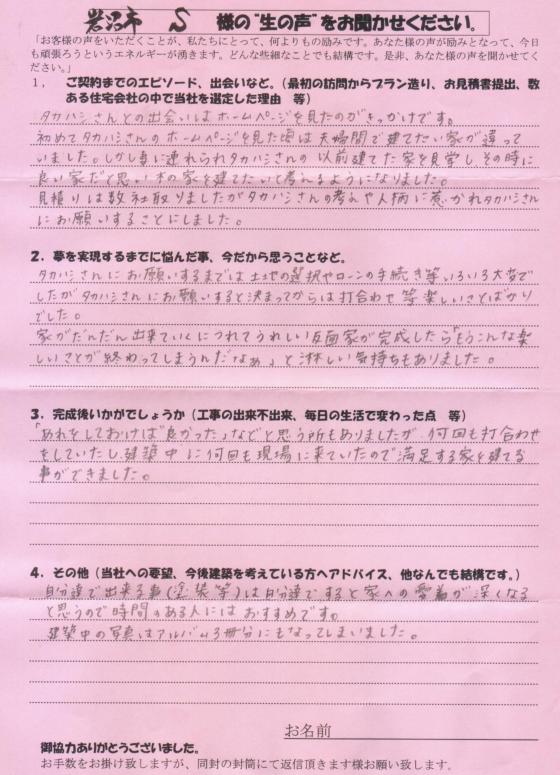 岩沼市 S 様の"生の声"をお聞かせください。
「お客様の声をいただくことが、私たちにとって、何よりもの励みです。あなた様の声が励みとなって、今日
も頑張ろうというエネルギーが湧きます。どんな些細なことでも結構です。是非、あなた様の声を聞かせてく
ださい。」
1. ご契約までのエピソード、出会いなど。(最初の訪問からプラン造り、お見積書提出、数
ある住宅会社の中で当社を選定した理由 等)
タカハシさんとの出会いはホームページを見たのがきっかけです。
初めてタカハシさんのホームページを見た頃は夫婦間で建てたい家が違って
いました。しかし妻に連れられタカハシさんの以前建てた家を見学しその時に
良い家だと思い木の家を建てたいと考えるようになりました。
見積りは数社取りましたがタカハシさんの考えや人柄に惹かれタカハシさん
にお願いすることにしました。
2. 夢を実現するまでに悩んだ事、今だから思うことなど。
タカハシさんにお願いするまでは土地の選択やローンの手続き等いろいろ大変で
したがタカハシさんにお願いすると決まってからは打合わせ等楽しいことばかり
でした。
家がだんだん出来ていくにつれてうれしい反面家が完成したら「もうこんな楽
しいことが終わってしまうんだなぁ」と淋しい気持ちもありました。
3. 完成後いかがでしょうか(工事の出来不出来、毎日の生活で変わった点 等)
「あれをしておけば良かった」などと思う所もありましたが、何回も打合わせ
をしていたし建築中に何回も現場に来ていたので満足する家を建てる
事ができました。
4. その他(当社への要望、今後建築を考えている方へアドバイス、他なんでも結構です。)
自分達で出来る事(塗装等)は自分達ですると家への愛着が深くなる
と思うので時間のある人にはおすすめです。
建築中の写真はアルバム3冊分にもなってしまいました。
お名前
御協力ありがとうございました。
お手数をお掛け致しますが、同封の封筒にて返信頂きます様お願い致します。